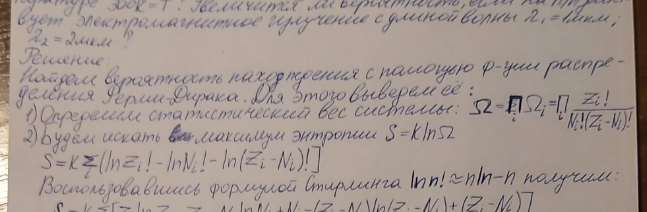 300K = T. Увеличится ли вероятность, если на
вует электромагнитное излучение с длиной волны λ₁ = 1мкм;
λ₂ = 2мкм?
Решение:
Найдем вероятность нахождения с помощью ф-ции распре-
деления Ферми-Дирака. Для этого выведем её:
1) Определим статистический вес системы: Ω = ∏ᵢ Ωᵢ = ∏ᵢ Zᵢ! / Nᵢ!(Zᵢ-Nᵢ)!
2) Будем искать максимум энтропии S = k lnΩ
S = k Σᵢ [ln Zᵢ! - ln Nᵢ! - ln(Zᵢ - Nᵢ)!]
Воспользовавшись формулой Стирлинга ln n! ≈ n ln n - n получим: